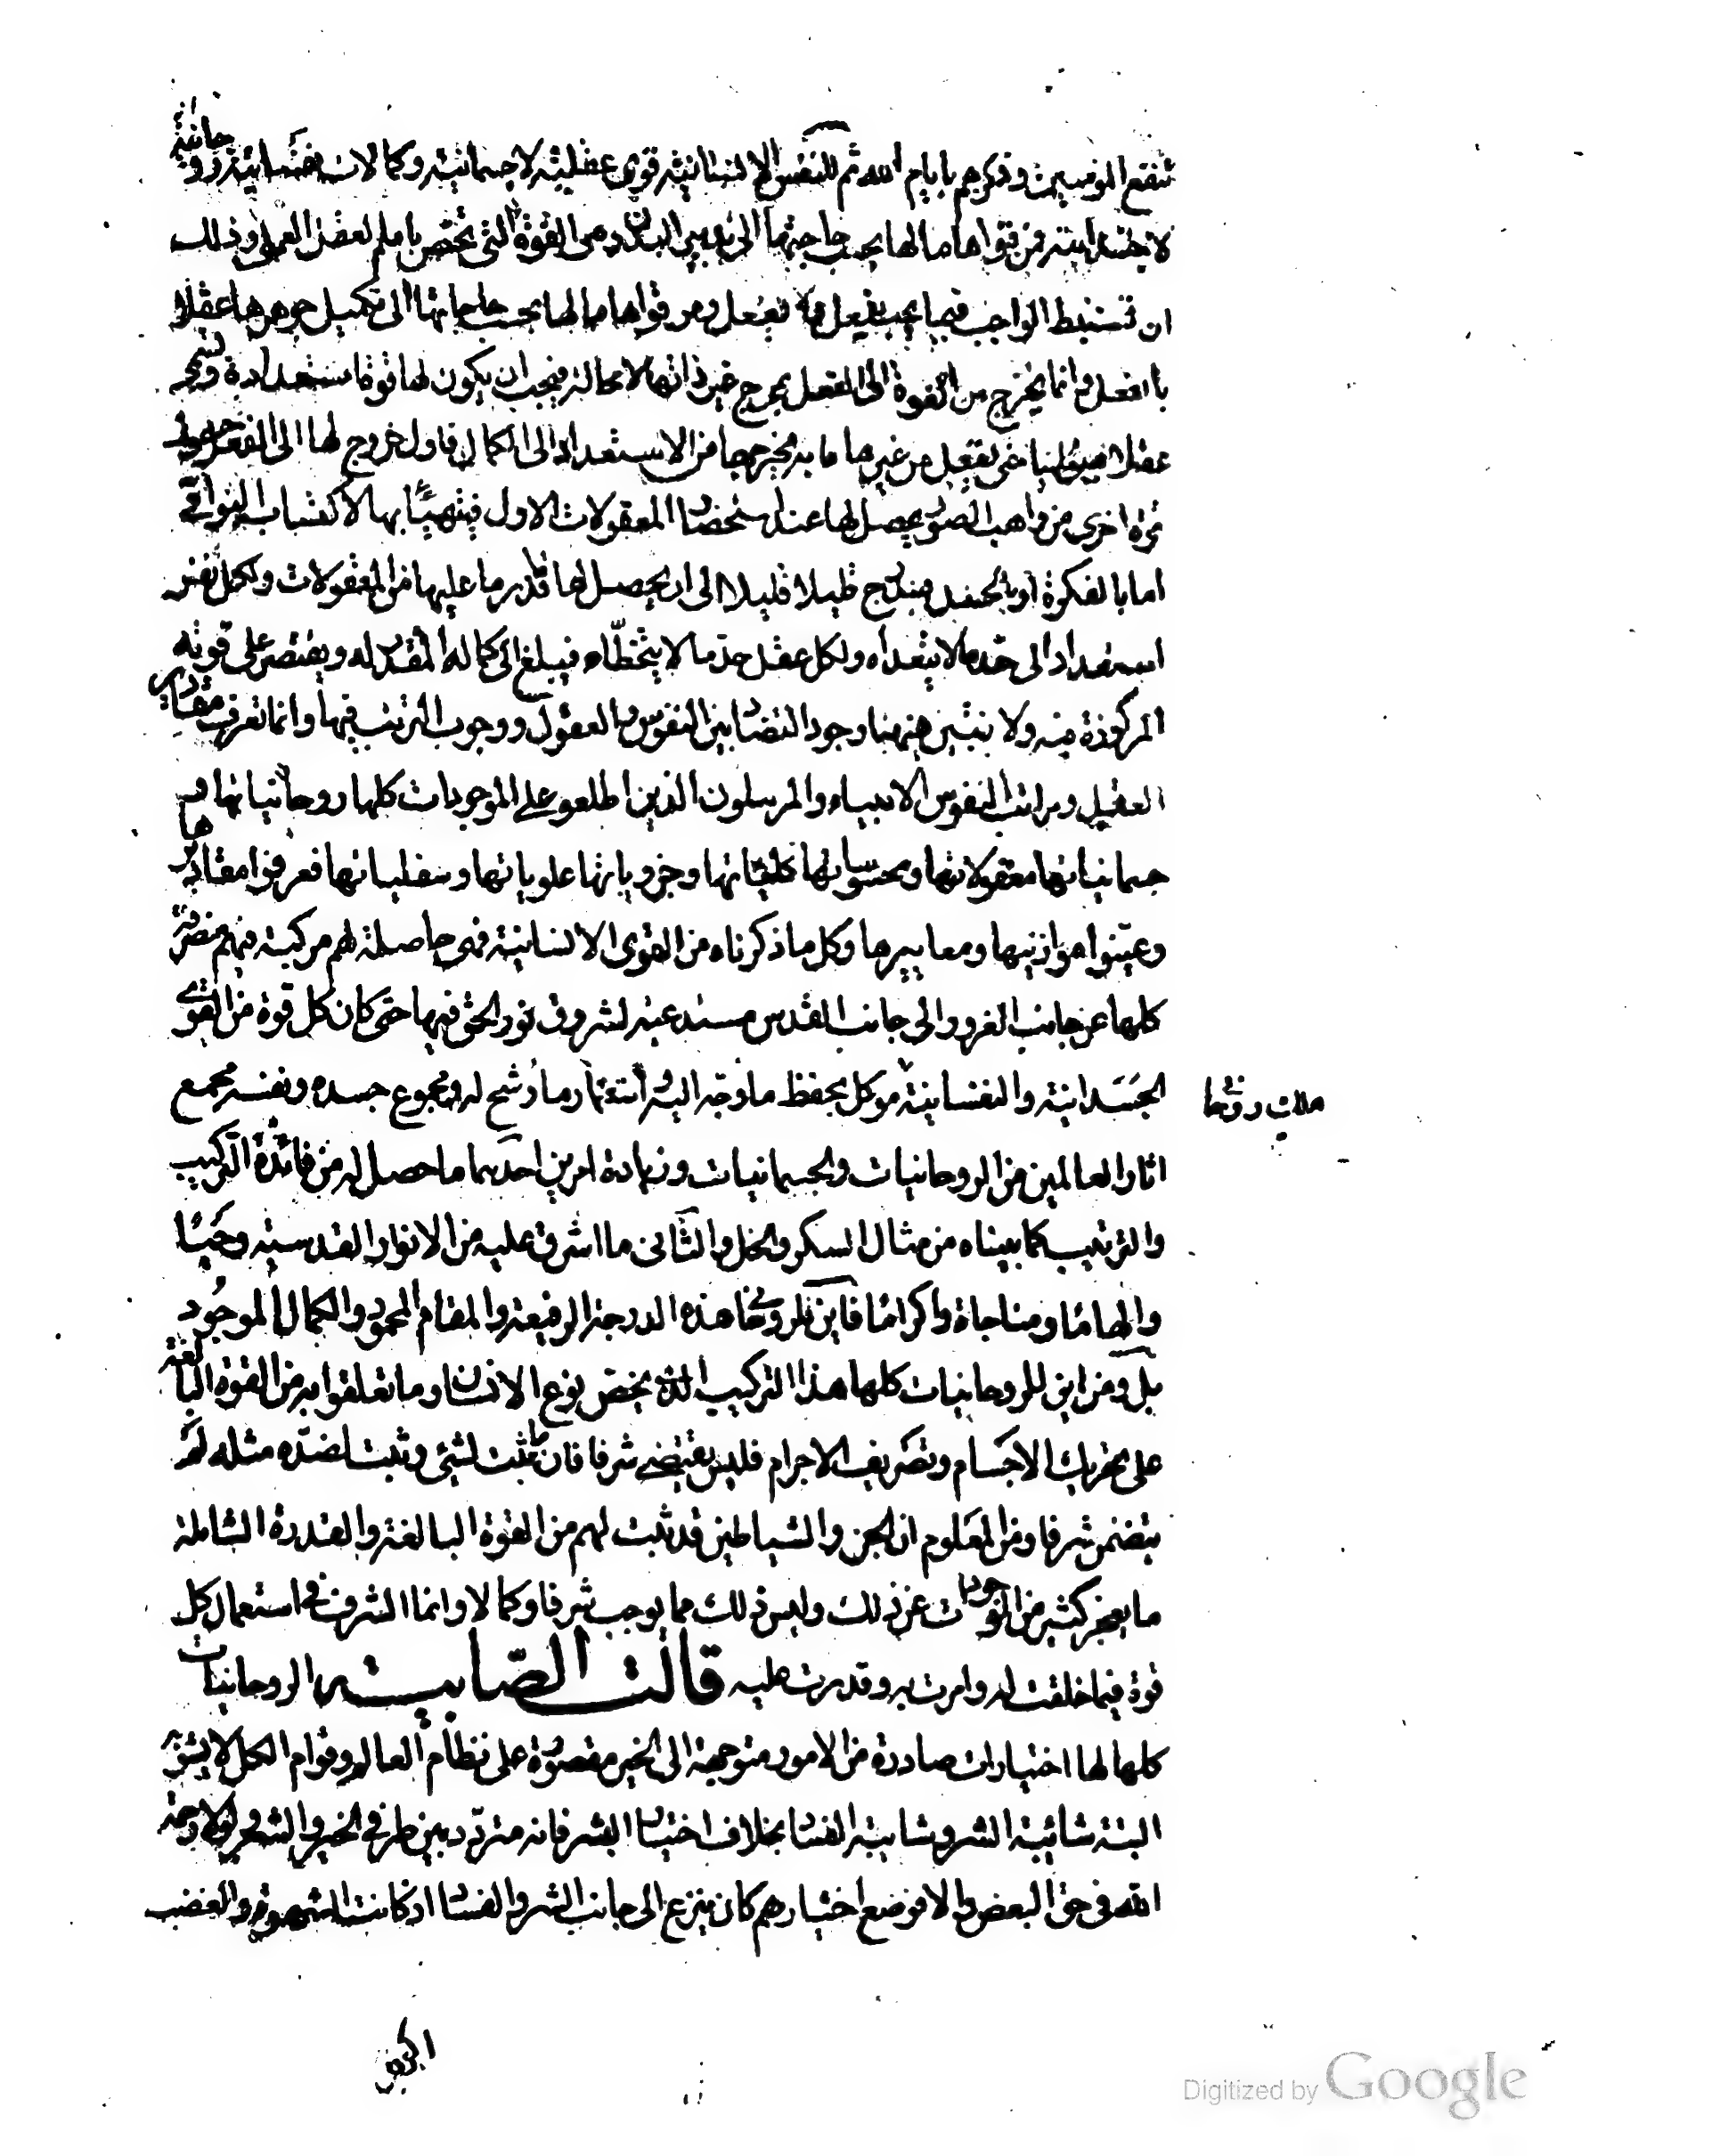 تنفع المومنين وذكرهم بايام الله ثم للنفس الانسانية قوى عقلية لا جسمانية وكمالات نفسانية روحانية
لا جسدانية فمن قواها ما لها بحسب حاجتها الى تدبير البدن وهى القوة التى تختص باسم العقل العملى وذلك
ان تستنبط الواجب فيما يجب ان يفعل ولا تفعل ومن قواها ما لها بحسب حاجاتها الى تكميل جوهرها عقلا
بالفعل وانما يخرج من القوة الى الفعل بمخرج غير ذاتها لا محالة فيجب ان يكون لها قوة استعدادية تسمى
عقلا هيولانيا حتى يقبل من غيرها ما به يخرجها من الاستعداد الى الكمال فاول خروج لها الى الفعل حصول
قوة اخرى من واهب الصور يحصل لها عند استحضار المعقولات الاول فيتهيأ بها لاكتساب الثوانى
اما بالفكرة او بالحدس فيتدرج قليلا قليلا الى ان يحصل لها ما قدر عليها من المعقولات ولكل نفس
استعداد الى حد ما لا يتعداه ولكل عقل حد ما لا يتخطاه فيبلغ الى كماله المقدر له ويقتصر على قوته
المركوزة فيه ولا يتبين هيهنا وجود التضاد بين النفوس والعقول ووجوب الترتب فيها وانما تعرف مقادير
العقول ومراتب النفوس الانبياء والمرسلون الذين اطلعو على الموجودات كلها روحانياتها و
جسمانياتها معقولاتها ومحسوساتها كلياتها وجزوياتها علوياتها وسفلياتها فعرفوا مقاديرها
وعينوا موازينها ومعاييرها وكل ما ذكرناه من القوى الانسانية فهى حاصلة لهم مركبة فيهم منصرفة
كلها عن جانب الغرور الى جانب القدس مستدعية لشروق نور الحق فيها حتى كان كل قوة من القوى
الجسدانية والنفسانية موكل بحفظ ما وجه اليه استتماما رشح له ومجموع جسده ونفسه مجمع
ملك روحانى
اثار العالمين من الروحانيات والجسمانيات وزيادة امرين احدهما ما حصل له من فائدة التركيب
والترتيب كما بيناه من مثال السكر والخل والثانى ما اشرق عليه من الانوار القدسية وحيا
والهاما ومناجاة واكراما فاين للروحانى هذه الدرجة الرفيعة والمقام المحمود والكمال الموجود
بل ومن اين للروحانيات كلها هذا التركيب الذى يخص نوع الانسان وما تعلقوا به من القوة البالغة
على تحريك الاجسام وتصريف الاجرام فليس يقتضى شرفا فان ما ثبت لشئ وثبت لضده مثله لم
يتضمن شرفا ومن المعلوم ان الجن والشياطين قد ثبت لهم من القوة البالغة والقدرة الشاملة
ما يعجز كثير من الموجودات عن ذلك وليس ذلك مما يوجب شرفا وكمالا وانما الشرف فى استعمال كل
قوة فيما خلقت له وامرت به وقدرت عليه قالت الصابية الروحانيات
كلها لها اختيارات صادرة من الامور متوجهة الى الخير مقصورة على نظام العالم وقوام الكل لا يشوبه
البتة شائبة الشر وشايبة الفساد بخلاف اختيار البشر فانه متردد بين طرفى الخير والشر لولا رحمة
الله فى حق البعض والا فوضع اختيارهم كان ينزع الى جانب الشر والفساد اذ كانت الشهوة والغضب
Digitized by Google